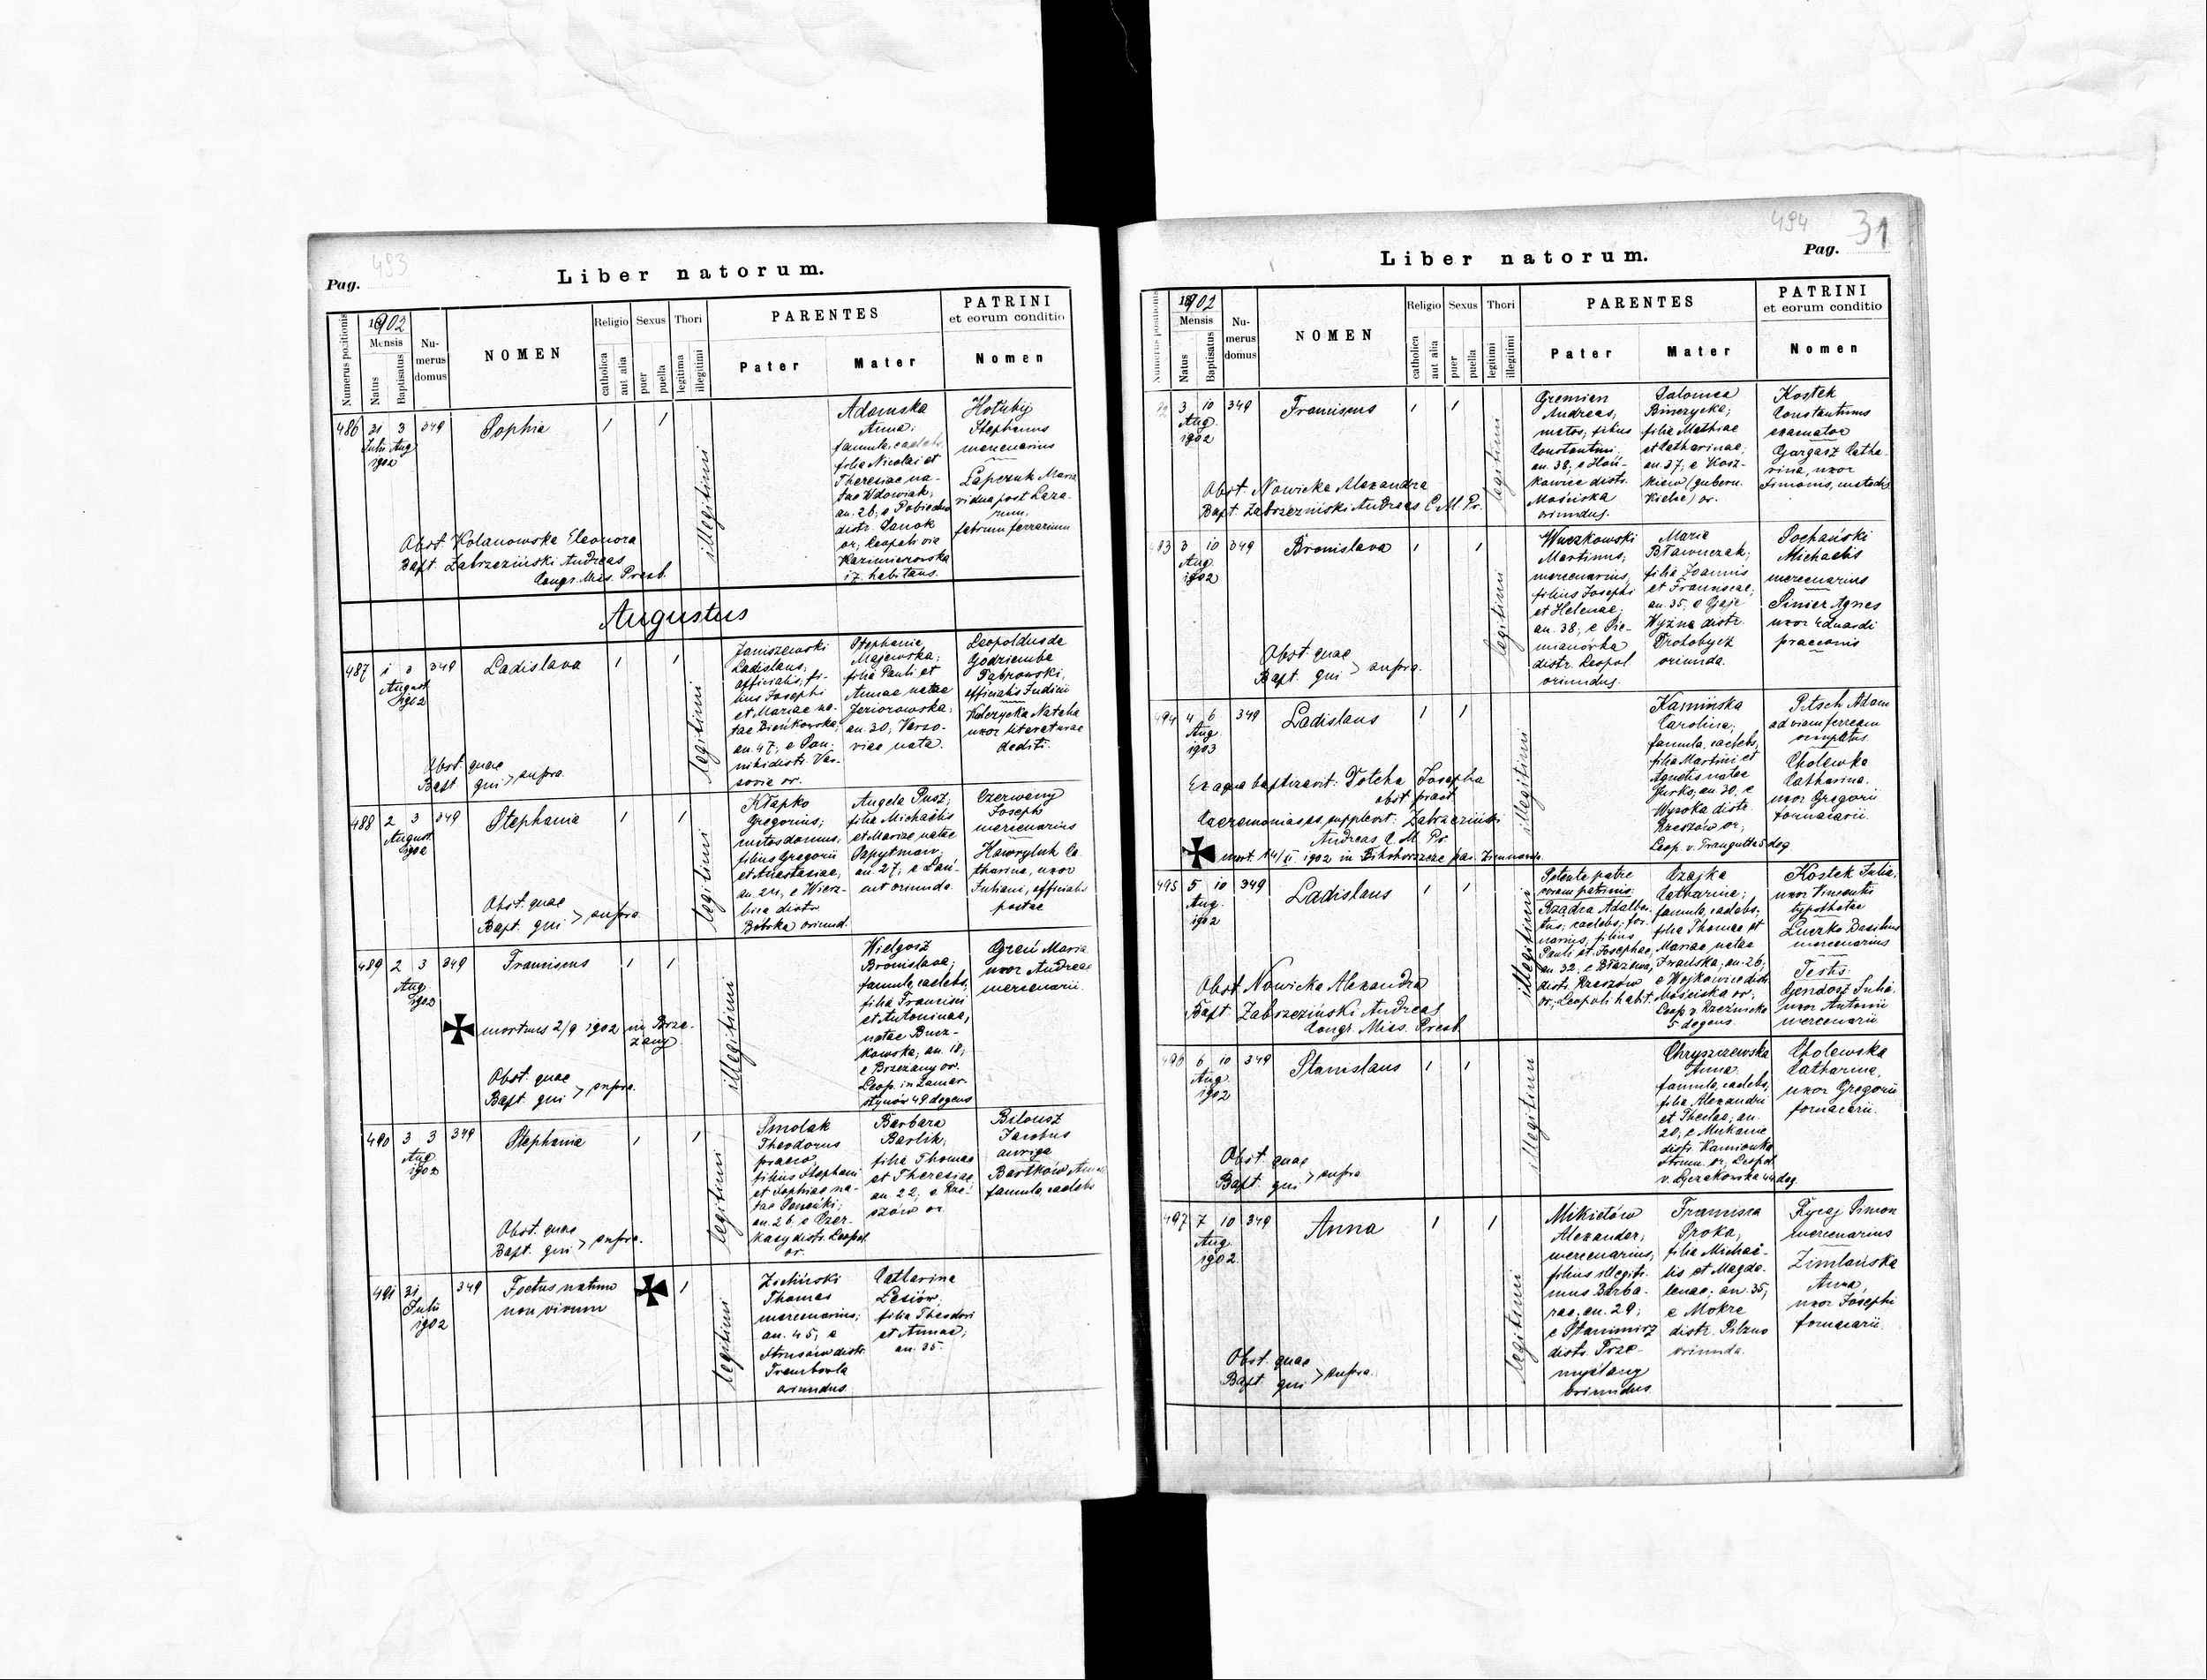 493
Pag.
Liber natorum.
Numerus positionis
1902
Mensis
Natus
Baptisatus
Nu-
merus
domus
NOMEN
Religio
catholica
aut alia
Sexus
puer
puella
Thori
legitima
illegitimi
PARENTES
Pater
Mater
PATRINI
et eorum conditio
Nomen
486
31 3
Julii Aug
1902
349
Sophia
1
1
illegitimi
Adamska
Anna,
famula, caelebs,
filia Nicolai et
Theresiae na-
tae Wdowiak,
an. 26, e
distr. Sanok
or, Leopoli via
Kazimierowska
17. habitans.
Hołubij
Stephanus
mercenarius
Łapczuk Maria
vidua post Laza-
rum,
fabrum ferrarium
Obst. Kolanowska Eleonora
Bapt. Zabrzeziński Andreas
Congr. Miss. Presb.
Augustus
487
1 3
August
1902
349
Ladislava
1
1
legitimi
Janiszewski
Ladislaus,
officialis, fi-
lius Josephi
et Mariae na-
tae Bieńkowska,
an. 47, e Pan-
niki distr. Var-
sovia or.
Stephania
Majewska,
filia Pauli et
Annae natae
Jeziorowska,
an. 30, Varso-
viae nata.
Leopoldus de
Godziemba
Dąbrowski,
officialis Judicii
Natalia
uxor literaturae
dediti.
Obst. quae
Bapt. qui > supra.
488
2 3
August
1902
349
Stephania
1
1
legitimi
Kłapko
Gregorius,
custos domus,
filius Gregorii
et Anastasiae,
an. 24, e Wierz-
bica distr.
Bóbrka oriund.
Angela Pusz,
filia Michaelis
et Mariae natae
an. 27, e Łań-
cut oriunda.
Czerwany
Joseph
mercenarius
Hawryluk Ca-
tharina, uxor
Juliani, officialis
postae
Obst. quae
Bapt. qui > supra.
489
2 3
Aug.
1902
349
Franciscus
1
1
illegitimi
Wielgosz
Bronislava,
famula, caelebs,
filia Francisci
et Antoninae,
natae Bucz-
kowska, an. 18,
e Brzezany or.
Leop. in Zamar-
stynów 49 degens
Greń Maria
uxor Andreae
mercenarii.
mortuus 2/9 1902 in Brze-
zany.
Obst. quae
Bapt. qui > supra.
490
3 3
Aug.
1902
349
Stephania
1
1
legitimi
Smolak
Theodorus
praeco,
filius Stephani
et Sophiae na-
tae
an. 26, e
distr. Leopol
or.
Barbara
Barlik,
filia Thomae
et Theresiae,
an. 22, e Rze-
szów or.
Bilousz
Jacobus
auriga
Bartków Anna
famula, caelebs
Obst. quae
Bapt. qui > supra.
491
31
Julii
1902
349
Foetus natum
non vivum
1
legitimi
Zieliński
Thomas
mercenarius,
an. 45, e
Strusów distr.
Trembowla
oriundus.
Catharina
Lesiów,
filia Theodori
et Annae,
an. 35.
494
31
Pag.
Liber natorum.
Numerus positionis
1902
Mensis
Natus
Baptisatus
Nu-
merus
domus
NOMEN
Religio
catholica
aut alia
Sexus
puer
puella
Thori
legitimi
illegitimi
PARENTES
Pater
Mater
PATRINI
et eorum conditio
Nomen
3 10
Aug.
1902
349
Franciscus
1
1
legitimi
Gremien
Andreas,
custos, filius
Constantini,
an. 38, e
distr.
Mościska
oriundus.
Salomea
Binczycka,
filia Mathiae
et Catharinae,
an. 37, e Kosz-
(gubern.
Kielce) or.
Kostek
Constantinus
examator
Gargasz Catha-
rina, uxor
Simonis, custodis
Obst. Nowicka Alexandra
Bapt. Zabrzeziński Andreas C. M. Pr.
3 10
Aug.
1902
349
Bronislava
1
1
legitimi
Martinus,
mercenarius,
filius Josephi
et Helenae,
an. 38, e Pie-
niarówka
distr. Leopol
oriundus.
Maria
Bławuczak,
filia Joannis
et Franciscae,
an. 35, e Gaje
Wyżne distr.
Drohobycz
oriunda.
Pochański
Michaelis
mercenarius
Sinier Agnes
uxor Eduardi
praeconis
Obst. quae
Bapt. qui > supra.
494
4 6
Aug.
1903
349
Ladislaus
1
1
illegitimi
Kamińska
Carolina,
famula, caelebs,
filia Martini et
Agnetis natae
Jurko, an. 30, e
Wysoka distr.
Rzeszów or,
Leop. v. Traugutta 5 deg.
Pitsch Adam
ad viam ferream
occupatus.
Cholewka
Catharina,
uxor Gregorii
fornacarii.
Ex aqua baptizavit: Dotcha Josepha
obst.
Caeremonias supplevit: Zabrzeziński
Andreas C. M. Pr.
mort. 14/ 1902 in
495
5 10
Aug.
1902
349
Ladislaus
1
1
illegitimi
Petente patre
coram patrinis:
Rządca Adalber-
tus, caelebs, for-
narius, filius
Pauli et Josephae,
an. 32, e Błażowa,
distr. Rzeszów
or, Leopoli habit.
Czajka
Catharina,
famula, caelebs,
filia Thomae et
Mariae natae
an. 26,
e Wojkowice distr.
Mościska or,
Leop. v. Rzeźnicka
5 degens.
Kostek Julia,
uxor Vincentii
typothetae
Łuczko Basilius
mercenarius
Testis:
Gendosz Julia,
uxor Antonii
mercenarii
Obst. Nowicka Alexandra
Bapt. Zabrzeziński Andreas
Congr. Miss. Presb.
496
6 10
Aug.
1902
349
Stanislaus
1
1
illegitimi
Chryszczewska
Anna,
famula, caelebs,
filia Alexandri
et Theclae, an.
20, e
distr. Kamionka
Strum. or, Leopol.
v. 44 deg.
Cholewska
Catharina,
uxor Gregorii
fornacarii.
Obst. quae
Bapt. qui > supra.
497
7 10
Aug.
1902.
349
Anna
1
1
legitimi
Mikietów
Alexander,
mercenarius,
filius illegiti-
mus Barba-
rae, an. 29,
e Stanimirz
distr. Prze-
myślany
oriundus.
Francisca
Sroka,
filia Michaë-
lis et Magda-
lenae, an. 35,
e Mokre
distr. Pilzno
oriunda.
Rycaj Simon
mercenarius
Zimlańska
Anna,
uxor Josephi
fornacarii.
Obst. quae
Bapt. qui > supra.